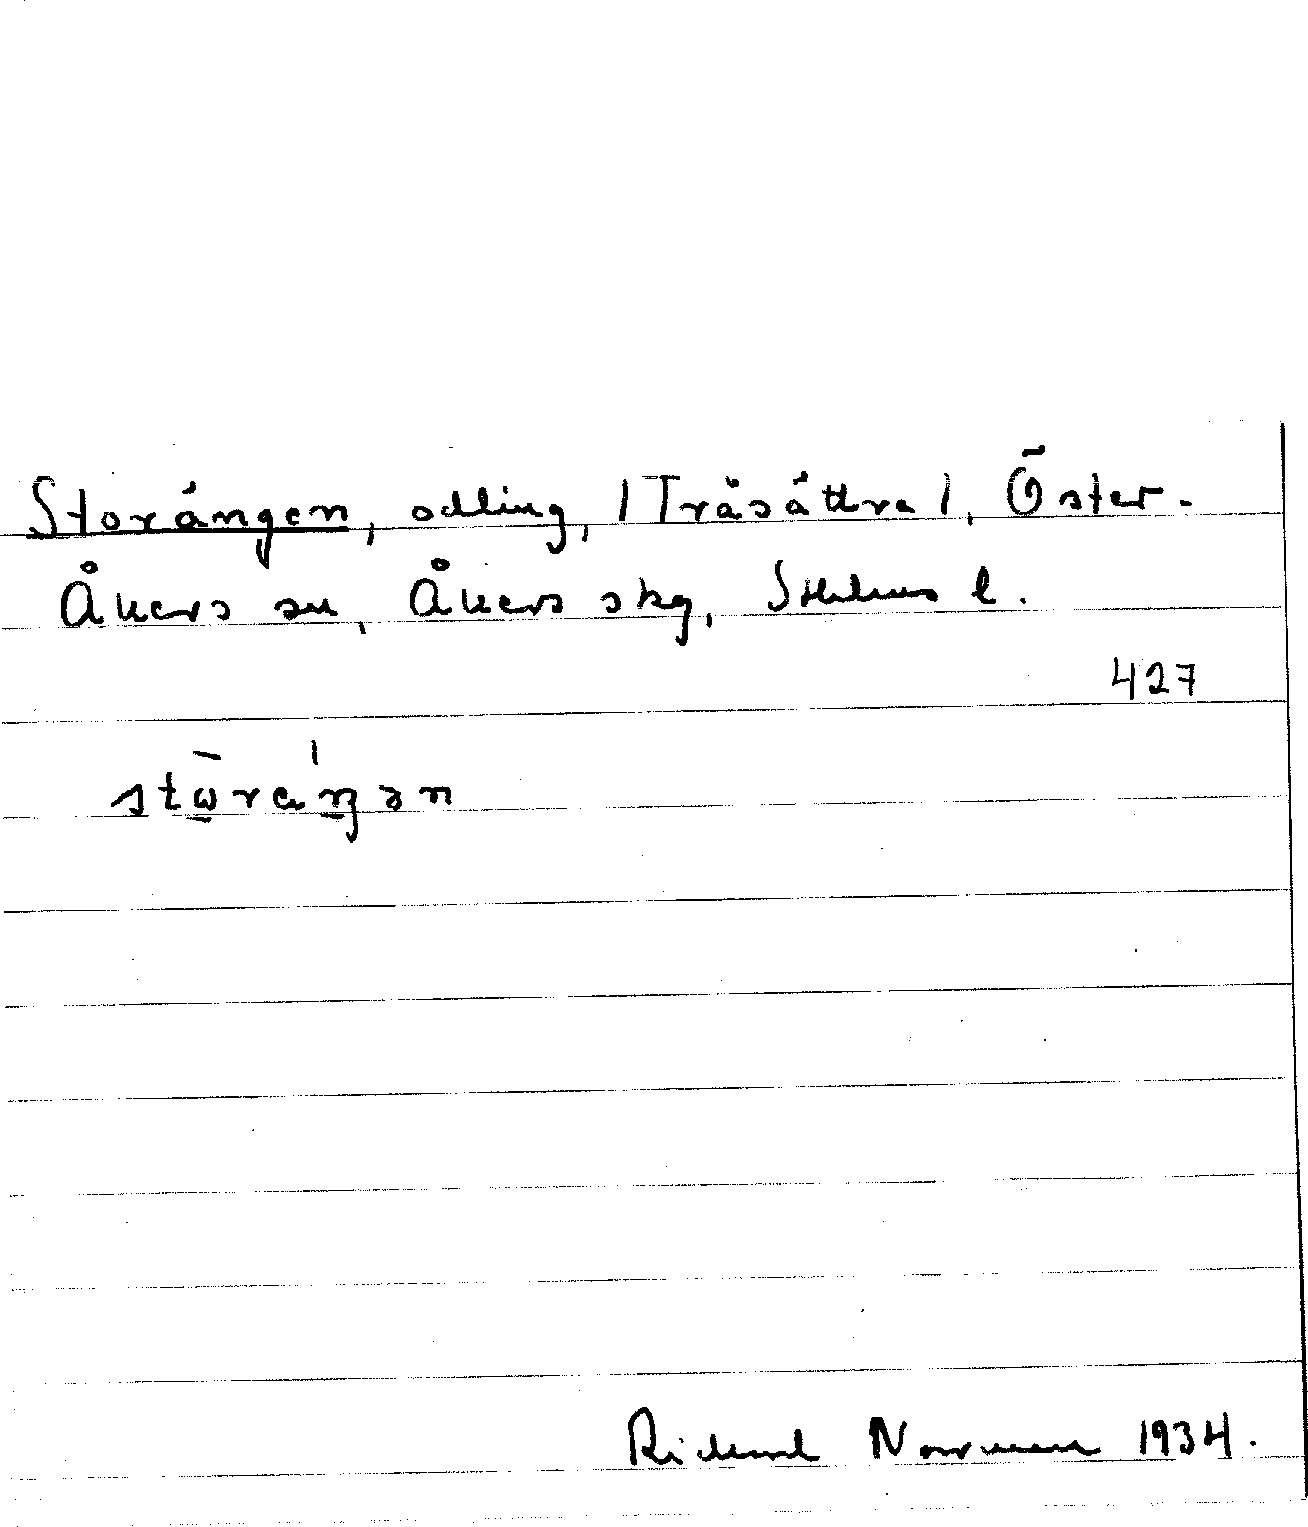 Storängen, odling, /Träsättra/, Öster-
Åkers sn, Åkers skg, Sthlms l.
427
stωraŋən
Richard Norrman 1934.